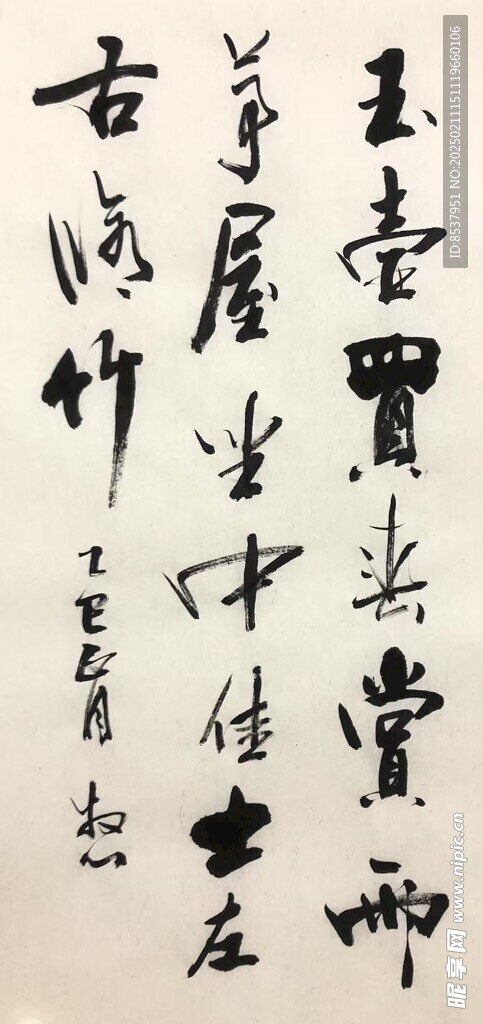 玉壺買春賞雨
茅屋坐中佳士左
右脩竹
乙巳正月
ID:8537951 NO:20250211151119660106
昵享网 www.nipic.cn